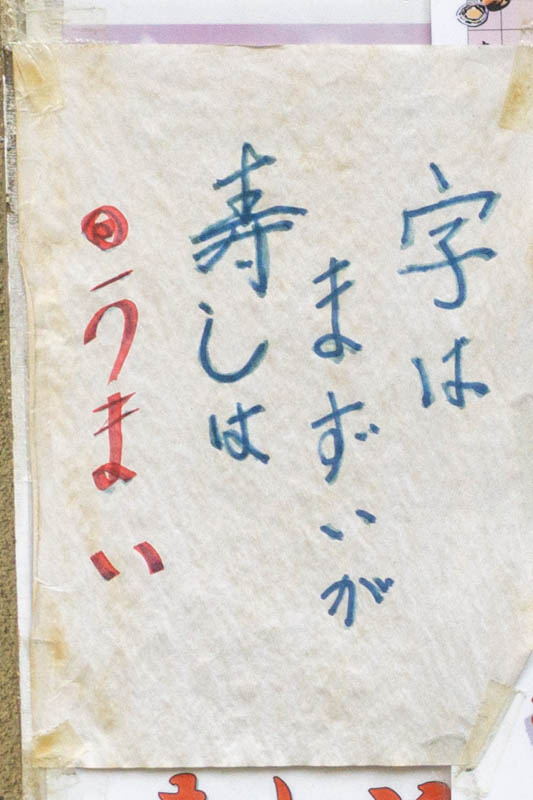 字は
まずいが
寿しは
◉うまい